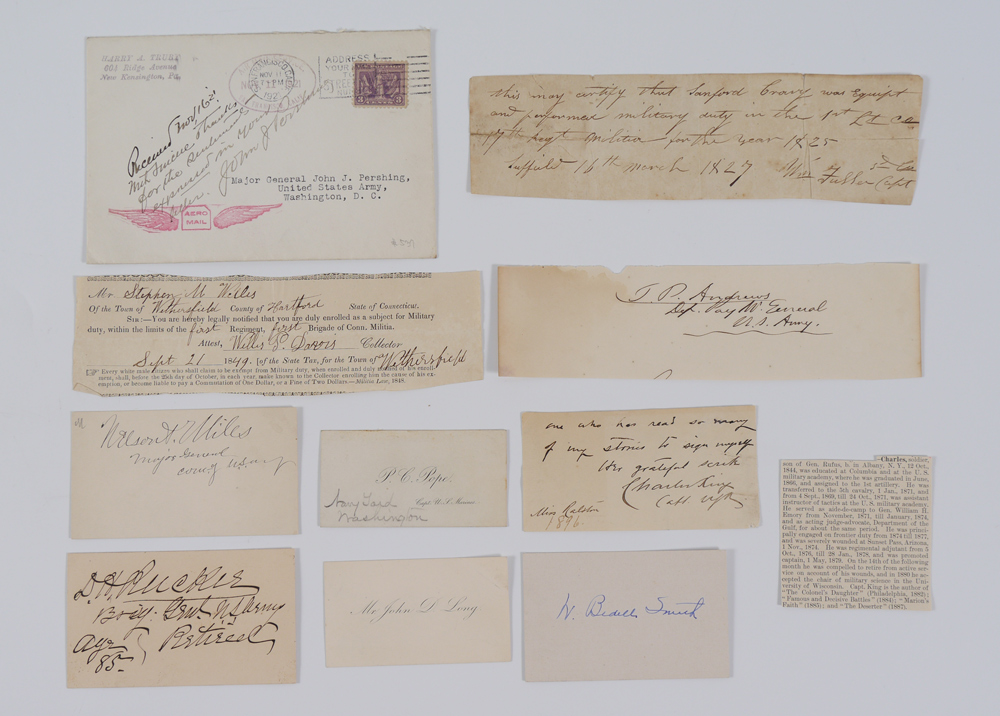 HARRY A. TRUBY
603 Ridge Avenue
New Kensington, Pa.
NOV 11
ADDRESS
YOUR
3
Received Nov, 16th
With sincere thanks
for the sentiments
expressed in your
letter.
John J Pershing
Major General John J. Pershing,
United States Army,
Washington, D. C.
AERO
MAIL
This may certify that Sanford Cravy was Equipt
and performed military duty in the 1st Lt Co
17th Regt Militia for the year 1825
Suffield 16th March 1827 Wm F Fuller Capt
Mr. Stephen M Willis
Of the Town of Wethersfield County of Hartford State of Connecticut.
SIR:—You are hereby legally notified that you are duly enrolled as a subject for Military
duty, within the limits of the first Regiment, first Brigade of Conn. Militia.
Attest, Collector
Sept 21 1849. [of the State Tax, for the Town of Wethersfield
☞ Every white male citizen who shall claim to be exempt from Military duty, when enrolled and duly notified of his enroll-
ment, shall, before the 25th day of October, in each year, make known to the Collector enrolling him the cause of his ex-
emption, or become liable to pay a Commutation of One Dollar, or a Fine of Two Dollars.—Militia Law, 1848.
T. P. Andrews
Dep. Pay Mr. General
U.S. Army.
Nelson A. Miles
Major General
Comdg U.S. Army
P. C. Pope.
Capt. U. S. Marines
Navy Yard
Washington
one who has read so many
of my stories to sign myself
Her grateful scribe
Charles King
Capt. USA
Miss Ralston
1896.
Charles, soldier,
son of Gen. Rufus, b. in Albany, N. Y., 12 Oct.,
1844, was educated at Columbia and at the U. S.
military academy, where he was graduated in June,
1866, and assigned to the 1st artillery. He was
transferred to the 5th cavalry, 1 Jan., 1871, and
from 4 Sept., 1869, till 24 Oct., 1871, was assistant
instructor of tactics at the U. S. military academy.
He served as aide-de-camp to Gen. William H.
Emory from November, 1871, till January, 1874,
and as acting judge-advocate, Department of the
Gulf, for about the same period. He was princi-
pally engaged on frontier duty from 1874 till 1877,
and was severely wounded at Sunset Pass, Arizona,
1 Nov., 1874. He was regimental adjutant from 3
Oct., 1876, till 28 Jan., 1878, and was promoted
captain, 1 May, 1879. On the 14th of the following
month he was compelled to retire from active ser-
vice on account of his wounds, and in 1880 he ac-
cepted the chair of military science in the
University of Wisconsin. Capt. King is the author of
"The Colonel's Daughter" (Philadelphia, 1882);
"Famous and Decisive Battles" (1884); "Marion's
Faith" (1885); and "The Deserter" (1887).
D. H. Rucker
Brig: Genl. U.S. Army
Age Retired
85.
Mr John D Long
W. Bedell Smith